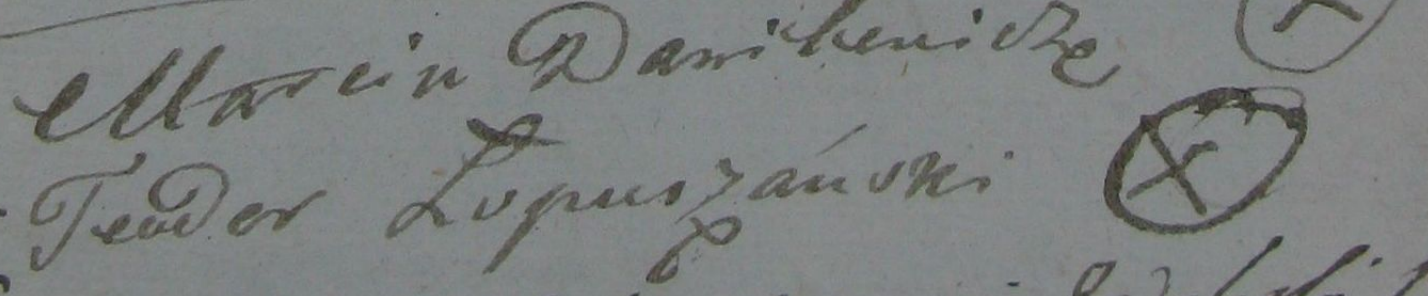 Marcin Danilewicz X
Teodor Łopuszáński X